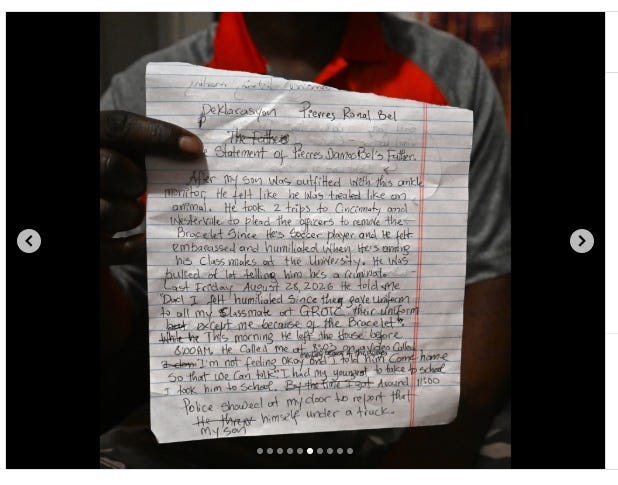 Deklarasyon Pierres Ronal Bel
The Father
Statement of Pierres Damos Bel's Father.
After my son was outfitted with this ankle
monitor, He felt like he was treated like an
animal. He took 2 trips to Cincinnaty and
Westerville to plead the officers to remove the
Bracelet Since He's Soccer player and He felt
embarassed and humiliated when He's among
his Classmates at the University. He was
bullied a lot telling him he's a criminal.
Last Friday August 28, 2026 He told me
"Dad I felt humiliated Since they gave uniform
to all my Classmate at GROTC their uniform
except me because of the Bracelet".
While he This morning He left the House before
8:00AM. He Called me at 8:03 on a video Call
I'm not feeling okay and I told him Come home
So that we Can talk" I had my youngest to take to school
I took him to school. By the time I got Around 11:00
Police showed at my door to report that
He threw himself under a truck.
My son